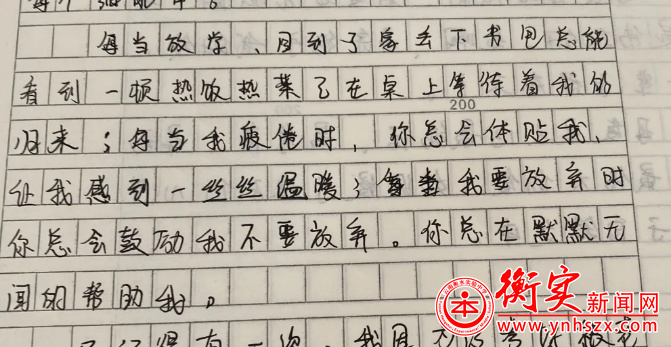 每当放学、回到了家丢下书包总能
看到一顿热饭热菜已在桌上等待着我的
200
归来；每当我疲倦时，你总会体贴我、
让我感到一丝丝温暖；每当我要放弃时
你总会鼓励我不要放弃。你总在默默无
闻的帮助我。
有一次，我
衡实新闻网
www.ynhszx.com